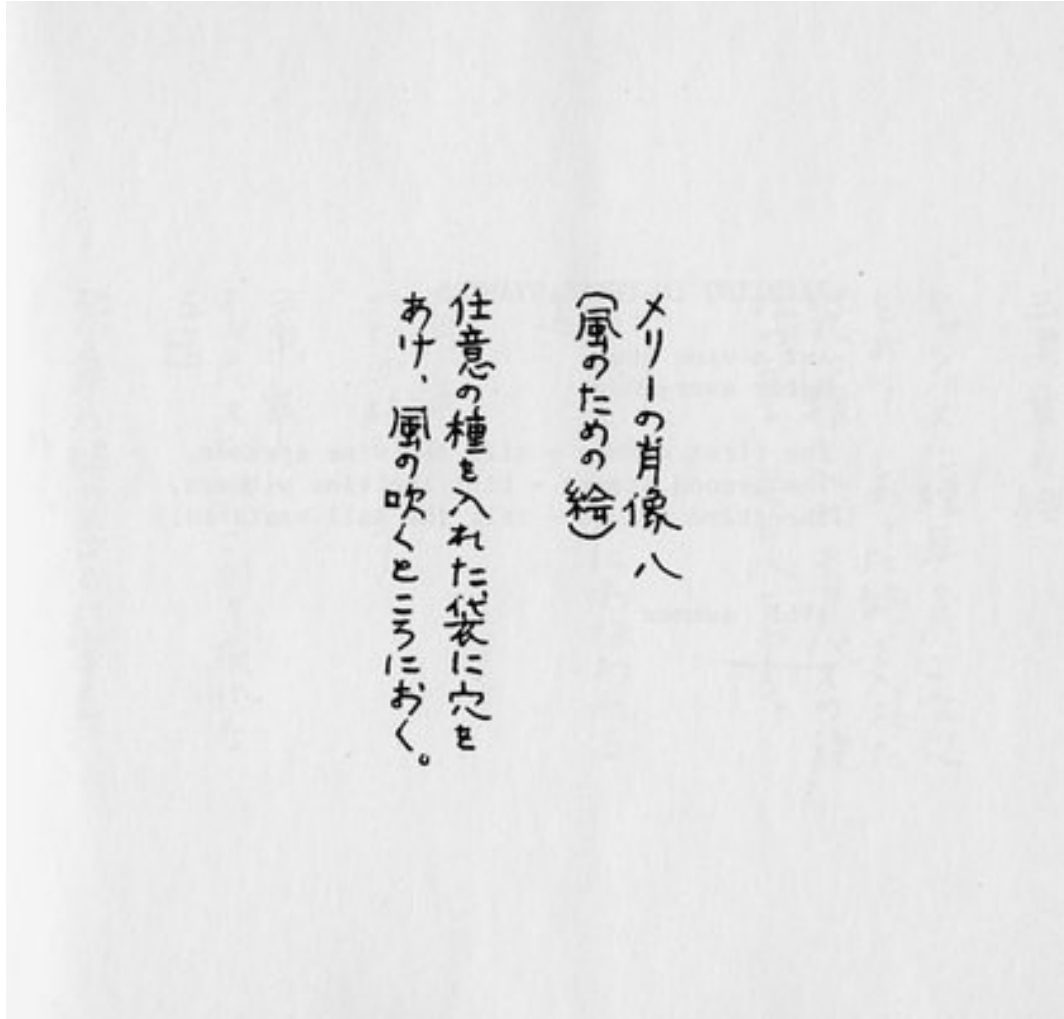 メリーの肖像 八
（風のための絵）
仕意の種を入れた袋に穴を
あけ、風の吹くところにおく。